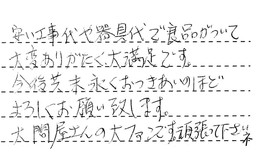 安い工事代や器具代で良品がついて
大変ありがたく大満足です。
今後共末永くおつきあいのほど
よろしくお願い致します。
太閤屋さんの大ファンです頑張って下さいネ